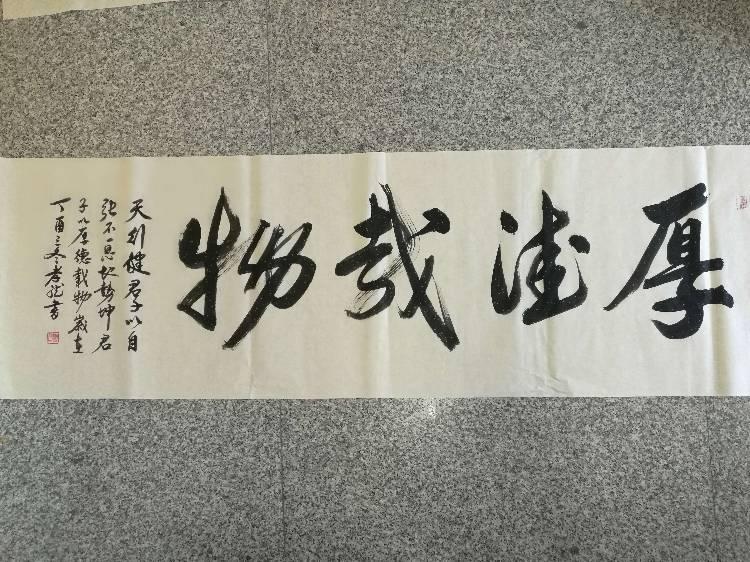 厚德载物
天行健君子以自
强不息地势坤君
子以厚德载物岁在
丁酉之冬书